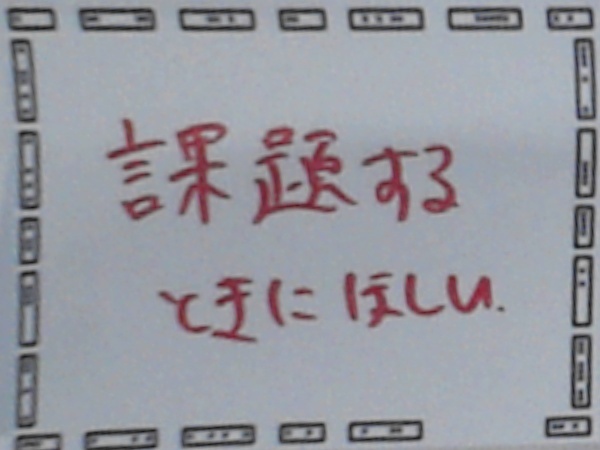 課題する
ときにほしい.